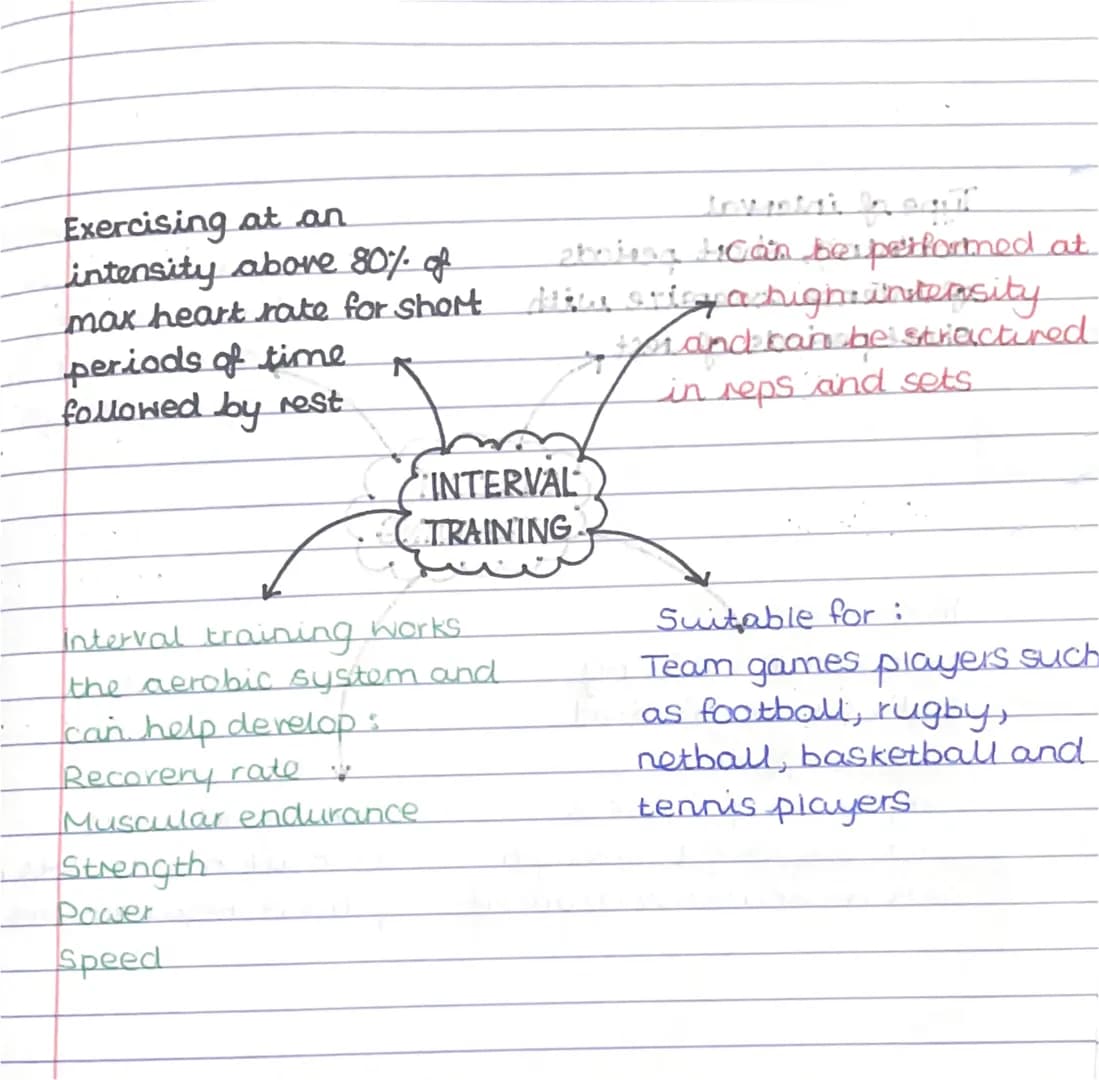 Exercising at an
intensity above 80% of
max heart rate for short
periods of time
followed by rest
Can be performed at
a high intensity
and can be stractured
in reps and sets
INTERVAL
TRAINING
Interval training works
the aerobic system and
can help develop :
Recovery rate
Muscular endurance
Strength
Power
Speed
Suitable for :
Team games players such
as football, rugby,
netball, basketball and
tennis players